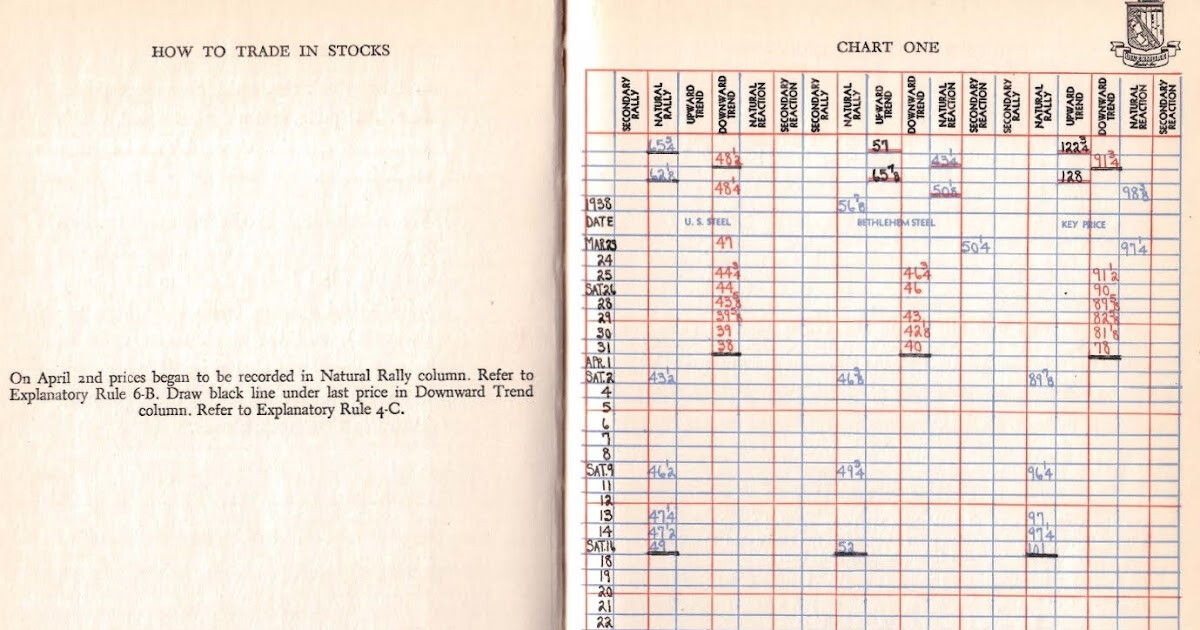 HOW TO TRADE IN STOCKS
On April 2nd prices began to be recorded in Natural Rally column. Refer to
Explanatory Rule 6-B. Draw black line under last price in Downward Trend
column. Refer to Explanatory Rule 4-C.
CHART ONE
LIVERMORE
SECONDARY RALLY
NATURAL RALLY
UPWARD TREND
DOWNWARD TREND
NATURAL REACTION
SECONDARY REACTION
SECONDARY RALLY
NATURAL RALLY
UPWARD TREND
DOWNWARD TREND
NATURAL REACTION
SECONDARY REACTION
SECONDARY RALLY
NATURAL RALLY
UPWARD TREND
DOWNWARD TREND
NATURAL REACTION
SECONDARY REACTION
65¾ 57 122¾
48½ 43¼ 91¾
62⅛ 65⅞ 128
48¼ 50⅛ 98⅜
1938 56⅞
DATE U. S. STEEL BETHLEHEM STEEL KEY PRICE
MAR.23 47 50¼ 97¼
24
25 44¾ 46¾ 91½
SAT.26 44 46 90
28 43⅝ 89⅝
29 39⅝ 43 82⅝
30 39 42⅛ 81⅛
31 38 40 78
APR.1
SAT.2 43½ 46⅜ 89⅞
4
5
6
7
8
SAT.9 46½ 49¾ 96¼
11
12
13 47¼ 97
14 47½ 97¼
SAT.16 49 52 101
18
19
20
21
22